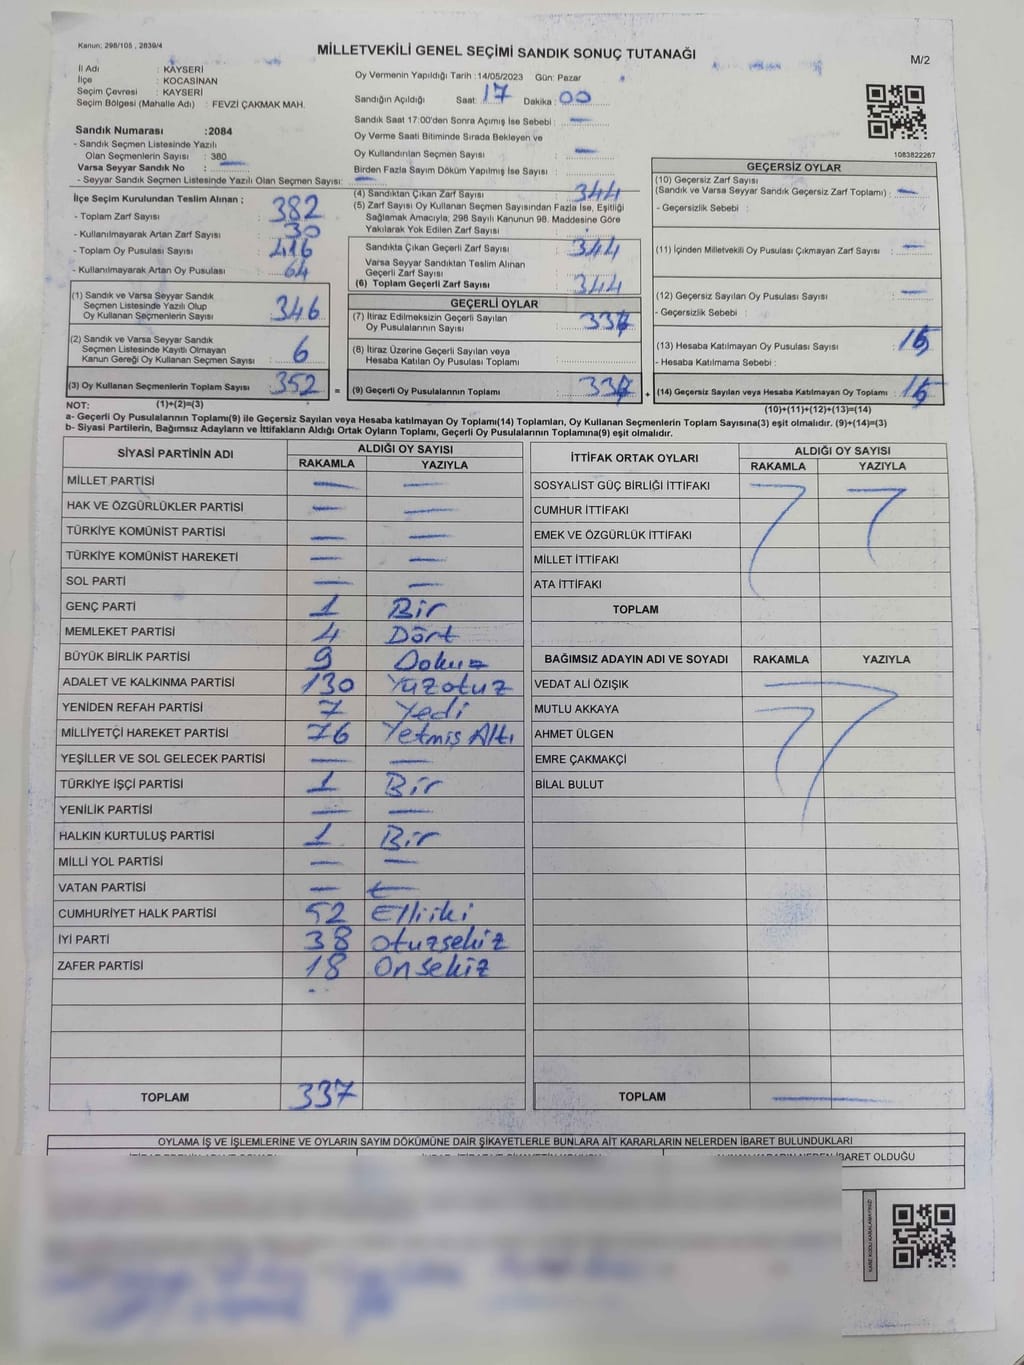 Kanun; 298/105 , 2839/4
MİLLETVEKİLİ GENEL SEÇİMİ SANDIK SONUÇ TUTANAĞI
M/2
İl Adı : KAYSERİ
İlçe : KOCASİNAN
Seçim Çevresi : KAYSERİ
Seçim Bölgesi (Mahalle Adı) : FEVZİ ÇAKMAK MAH.
Oy Vermenin Yapıldığı Tarih :14/05/2023 Gün: Pazar
Sandığın Açıldığı Saat: 17 Dakika : 00
Sandık Saat 17:00'den Sonra Açımış İse Sebebi : —
Oy Verme Saati Bitiminde Sırada Bekleyen ve
Oy Kullandırılan Seçmen Sayısı : —
Birden Fazla Sayım Döküm Yapılmış İse Sayısı : —
1083822267
Sandık Numarası :2084
- Sandık Seçmen Listesinde Yazılı
Olan Seçmenlerin Sayısı : 380
Varsa Seyyar Sandık No : —
- Seyyar Sandık Seçmen Listesinde Yazılı Olan Seçmen Sayısı: —
İlçe Seçim Kurulundan Teslim Alınan ;
- Toplam Zarf Sayısı : 382
- Kullanılmayarak Artan Zarf Sayısı : 30
- Toplam Oy Pusulası Sayısı : 416
- Kullanılmayarak Artan Oy Pusulası : 64
(1) Sandık ve Varsa Seyyar Sandık
Seçmen Listesinde Yazılı Olup
Oy Kullanan Seçmenlerin Sayısı : 346
(2) Sandık ve Varsa Seyyar Sandık
Seçmen Listesinde Kayıtlı Olmayan
Kanun Gereği Oy Kullanan Seçmen Sayısı : 6
(3) Oy Kullanan Seçmenlerin Toplam Sayısı : 352 =
(1)+(2)=(3)
(4) Sandıktan Çıkan Zarf Sayısı : 344
(5) Zarf Sayısı Oy Kullanan Seçmen Sayısından Fazla İse, Eşitliği
Sağlamak Amacıyla; 298 Sayılı Kanunun 98. Maddesine Göre
Yakılarak Yok Edilen Zarf Sayısı :
Sandıkta Çıkan Geçerli Zarf Sayısı : 344
Varsa Seyyar Sandıktan Teslim Alınan
Geçerli Zarf Sayısı :
(6) Toplam Geçerli Zarf Sayısı : 344
GEÇERLİ OYLAR
(7) İtiraz Edilmeksizin Geçerli Sayılan
Oy Pusulalarının Sayısı :
(8) İtiraz Üzerine Geçerli Sayılan veya
Hesaba Katılan Oy Pusulası Toplamı :
(9) Geçerli Oy Pusulalarının Toplamı : +
GEÇERSİZ OYLAR
(10) Geçersiz Zarf Sayısı
(Sandık ve Varsa Seyyar Sandık Geçersiz Zarf Toplamı) : —
- Geçersizlik Sebebi :
(11) İçinden Milletvekili Oy Pusulası Çıkmayan Zarf Sayısı : —
(12) Geçersiz Sayılan Oy Pusulası Sayısı : —
- Geçersizlik Sebebi :
(13) Hesaba Katılmayan Oy Pusulası Sayısı : 15
- Hesaba Katılmama Sebebi :
(14) Geçersiz Sayılan veya Hesaba Katılmayan Oy Toplamı : 15
(10)+(11)+(12)+(13)=(14)
NOT:
a- Geçerli Oy Pusulalarının Toplamı(9) ile Geçersiz Sayılan veya Hesaba katılmayan Oy Toplamı(14) Toplamları, Oy Kullanan Seçmenlerin Toplam Sayısına(3) eşit olmalıdır. (9)+(14)=(3)
b- Siyasi Partilerin, Bağımsız Adayların ve İttifakların Aldığı Ortak Oyların Toplamı, Geçerli Oy Pusulalarının Toplamına(9) eşit olmalıdır.
SİYASİ PARTİNİN ADI ALDIĞI OY SAYISI
RAKAMLA YAZIYLA
MİLLET PARTİSİ — —
HAK VE ÖZGÜRLÜKLER PARTİSİ — —
TÜRKİYE KOMÜNİST PARTİSİ — —
TÜRKİYE KOMÜNİST HAREKETİ — —
SOL PARTİ — —
GENÇ PARTİ 1 Bir
MEMLEKET PARTİSİ 4 Dört
BÜYÜK BİRLİK PARTİSİ 9 Dokuz
ADALET VE KALKINMA PARTİSİ 130 Yüzotuz
YENİDEN REFAH PARTİSİ 7 Yedi
MİLLİYETÇİ HAREKET PARTİSİ 76 Yetmiş Altı
YEŞİLLER VE SOL GELECEK PARTİSİ — —
TÜRKİYE İŞÇİ PARTİSİ 1 Bir
YENİLİK PARTİSİ — —
HALKIN KURTULUŞ PARTİSİ 1 Bir
MİLLİ YOL PARTİSİ — —
VATAN PARTİSİ — —
CUMHURİYET HALK PARTİSİ 52 Elliiki
İYİ PARTİ 38 Otuzsekiz
ZAFER PARTİSİ 18 Onsekiz
TOPLAM 337
İTTİFAK ORTAK OYLARI ALDIĞI OY SAYISI
RAKAMLA YAZIYLA
SOSYALİST GÜÇ BİRLİĞİ İTTİFAKI
CUMHUR İTTİFAKI
EMEK VE ÖZGÜRLÜK İTTİFAKI
MİLLET İTTİFAKI
ATA İTTİFAKI
TOPLAM
BAĞIMSIZ ADAYIN ADI VE SOYADI RAKAMLA YAZIYLA
VEDAT ALİ ÖZIŞIK
MUTLU AKKAYA
AHMET ÜLGEN
EMRE ÇAKMAKÇİ
BİLAL BULUT
TOPLAM —
OYLAMA İŞ VE İŞLEMLERİNE VE OYLARIN SAYIM DÖKÜMÜNE DAİR ŞİKAYETLERLE BUNLARA AİT KARARLARIN NELERDEN İBARET BULUNDUKLARI
İBARET OLDUĞU